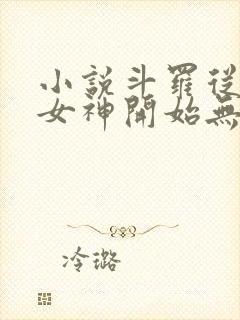 小說斗羅從
女神開始無
冷璐